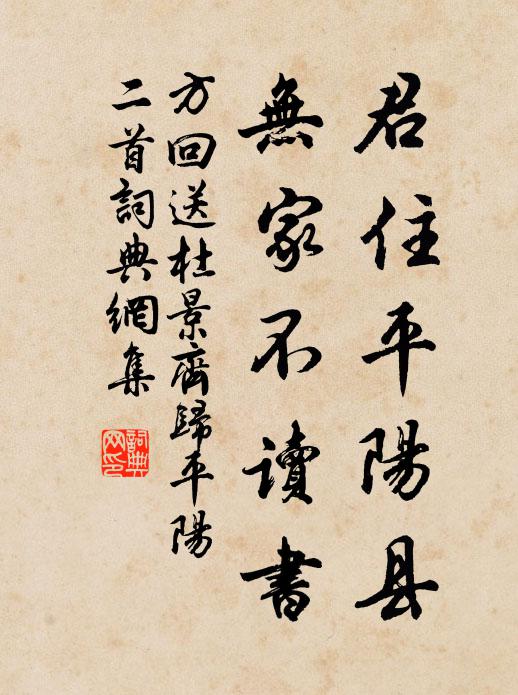 君住平陽县
無家不讀書
方回送杜景齋歸平陽
二首詞典網集
詞典
网印